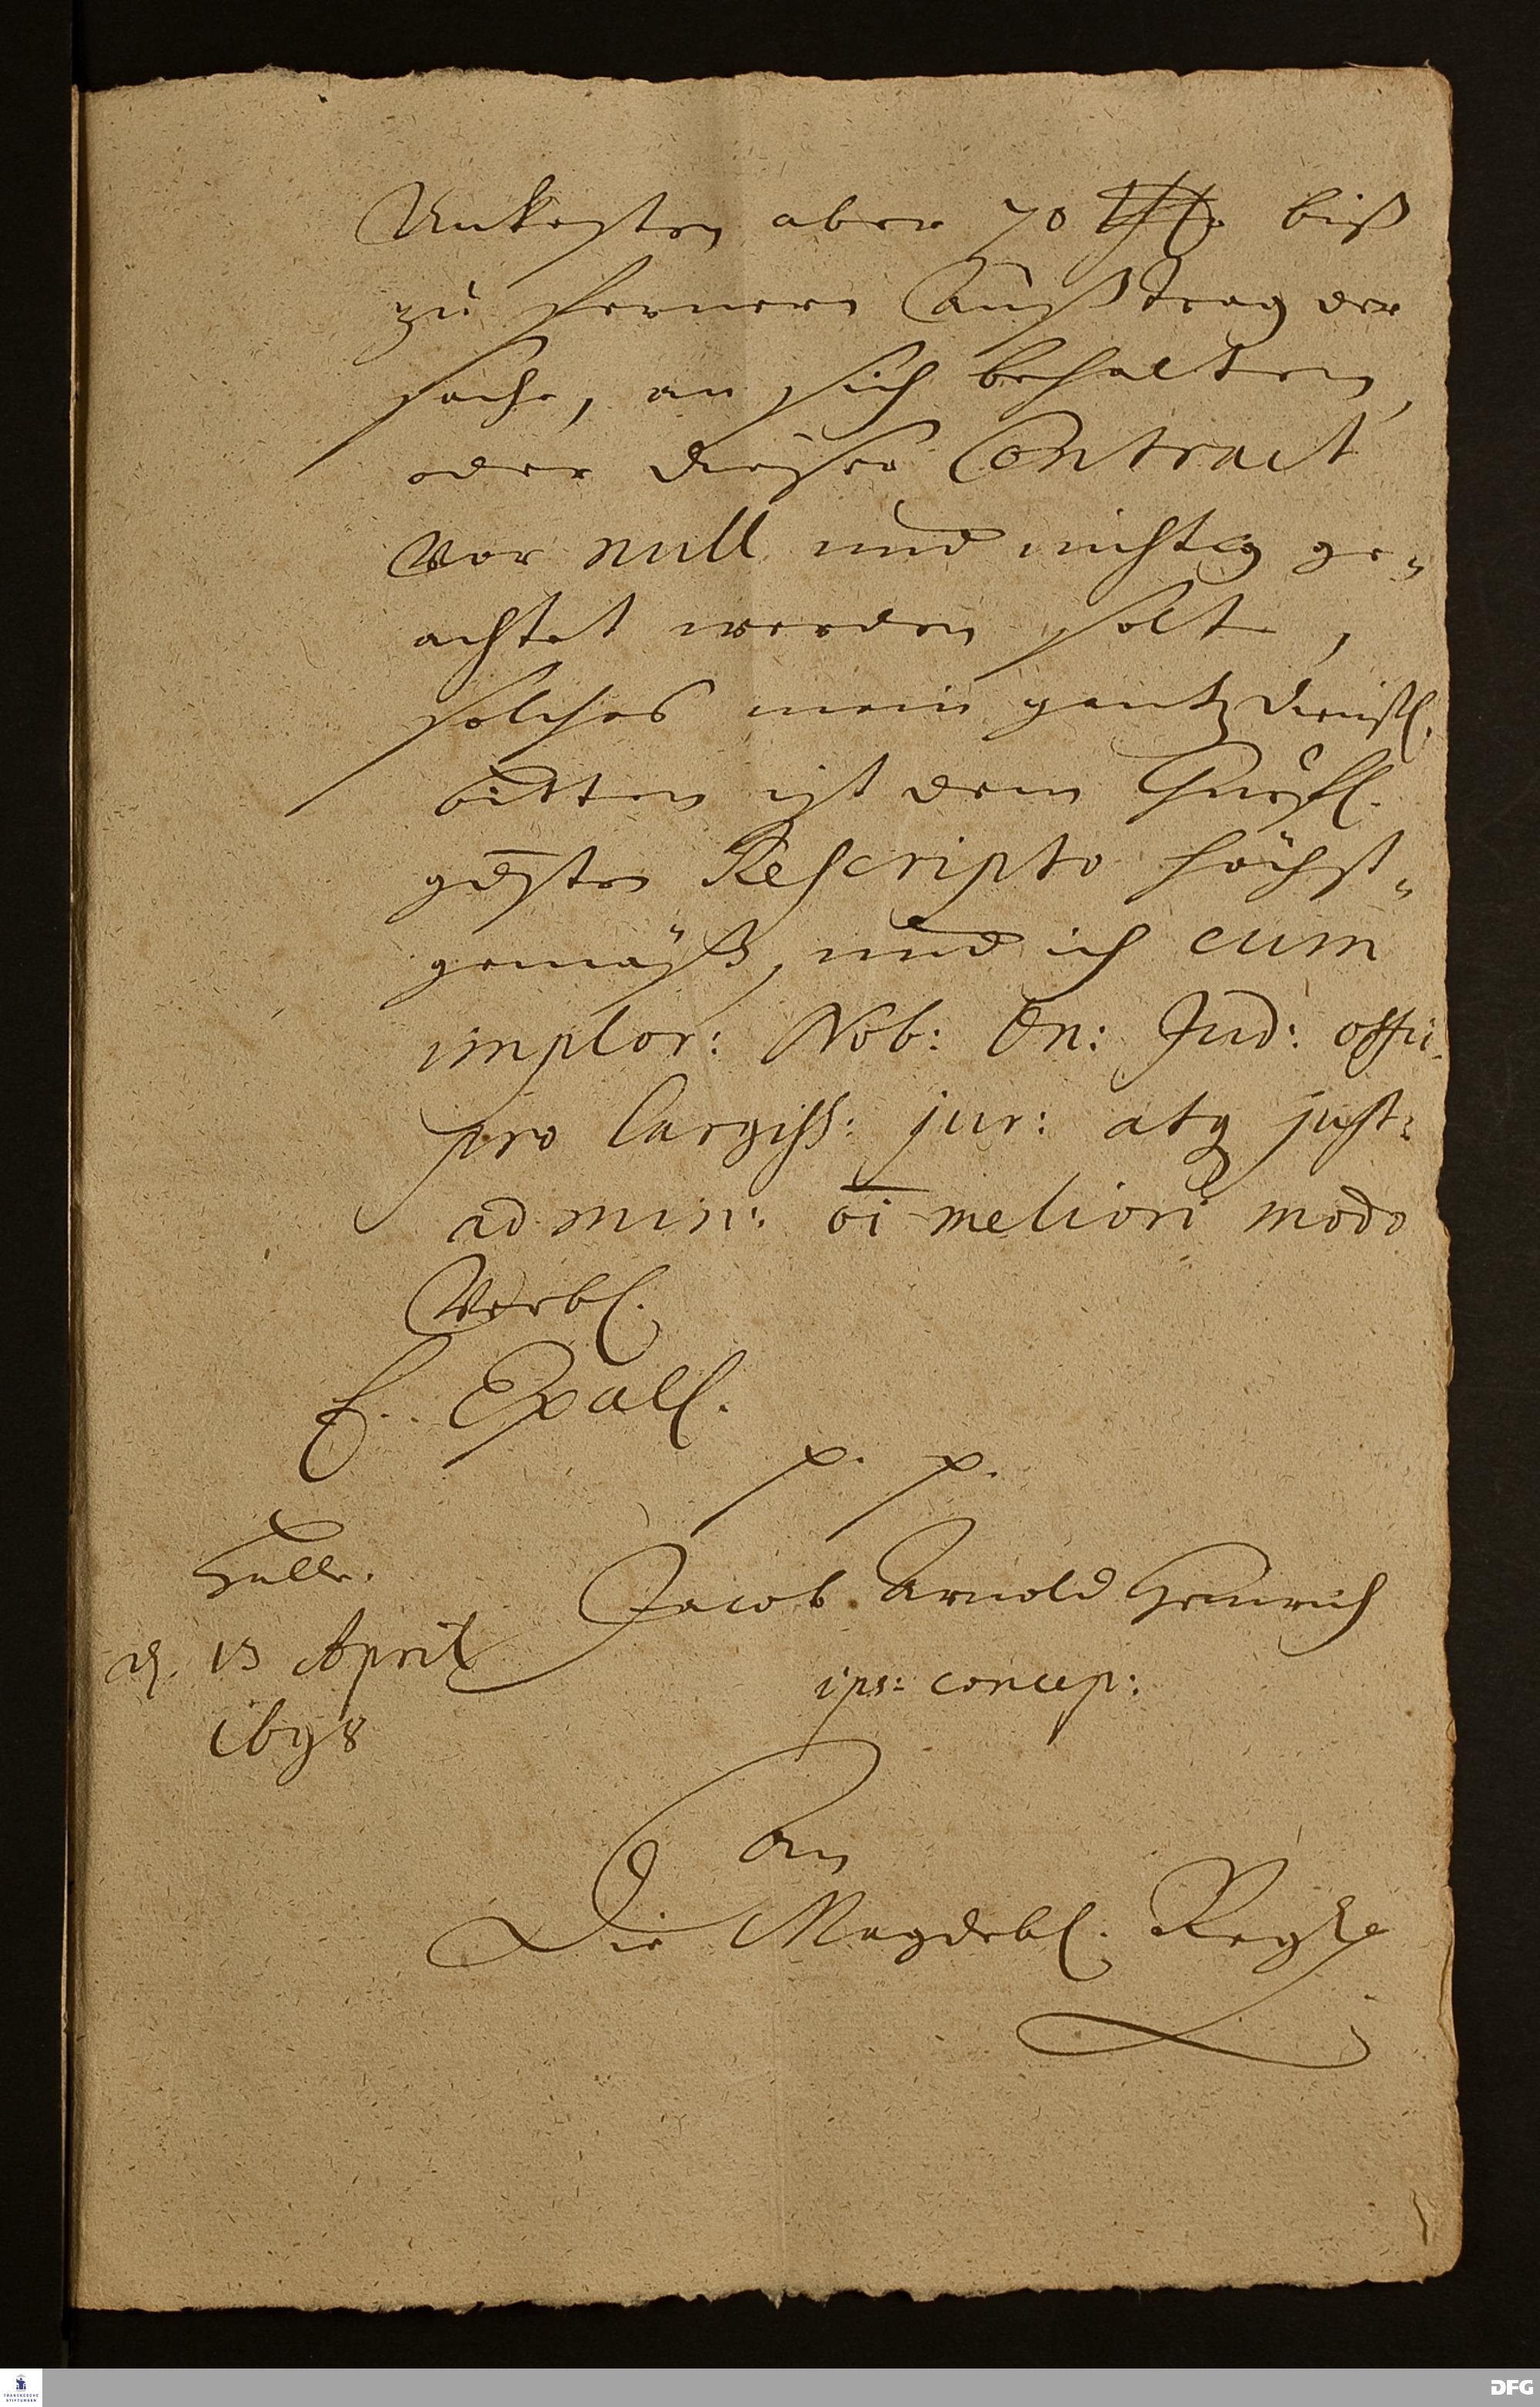 Unkosten aber 70 Thlr. biß
zu fernern Außtrag der
sache, an sich behalten,
oder dieser Contract
vor null und nichtig ge-
achtet werden solte,
solches mein gantz dienstl.
bitten ist dem Churfl.
gdsten Rescripto höchst-
gemäß, und ich cum
implor: Nob: Dn: Jud: offi.
pro largiss: jur: atq just:
admin: oi meliori modo
Verbl.
E. Excell.
p. p.
Halle.
d. 13 April
1698
Jacob Arnold Heinrich
ips: concep:
An
Die Magdebl. Reg
FRANCKESCHE
STIFTUNGEN
DFG